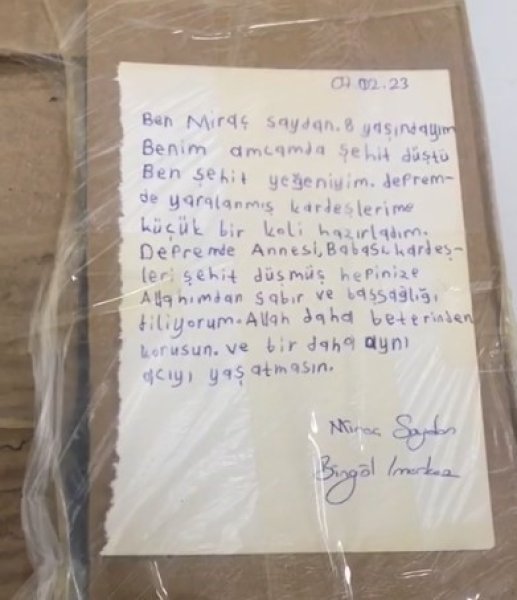 07.02.23
Ben Miraç saydan. 8 yaşındayım
Benim amcamda şehit düştü
Ben şehit yeğeniyim. deprem-
de yaralanmış kardeşlerime
küçük bir koli hazırladım.
Depremde Annesi, Babası, kardeş-
leri şehit düşmüş hepinize
Allahımdan sabır ve başsağlığı
diliyorum. Allah daha beterinden
korusun. ve bir daha aynı
acıyı yaşatmasın.
Miraç Saydan
Bingöl / merkez